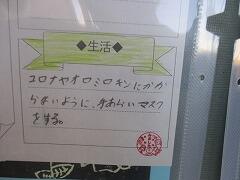 ◆生活◆
コロナやオミロキンにかか
らないように、手あらいマスク
をする。